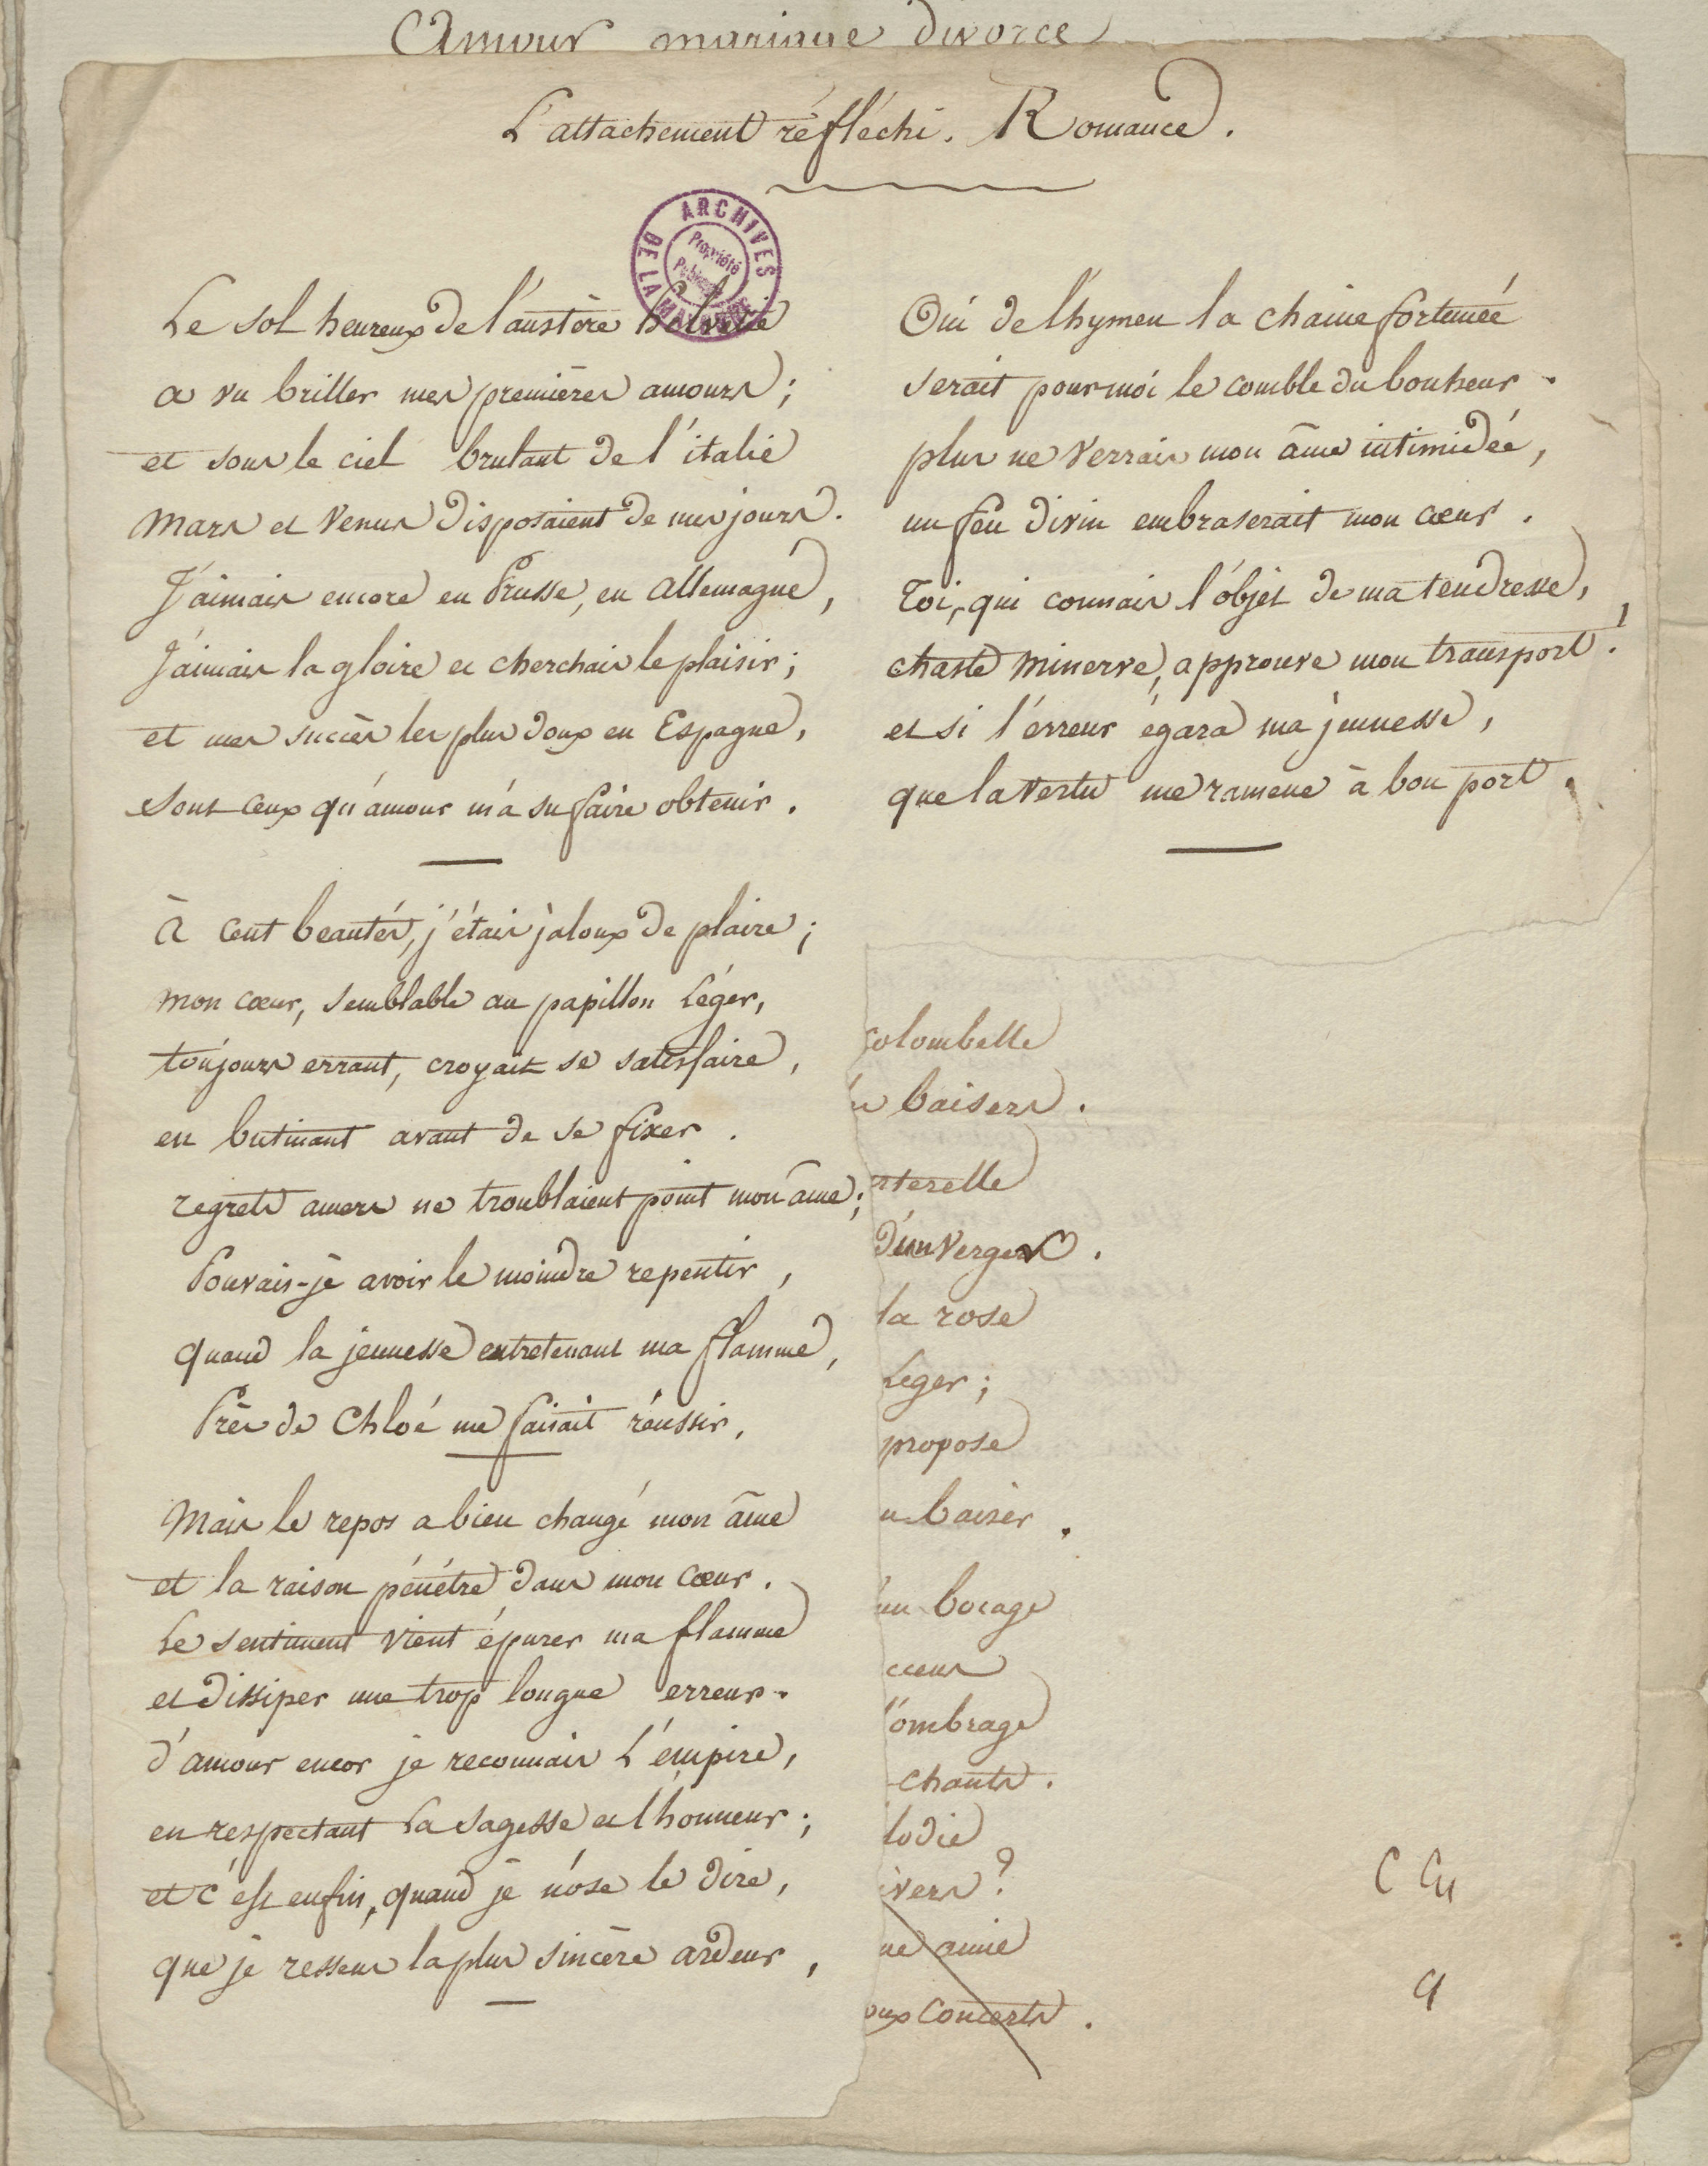 Amour mariage divorce
L'attachement réfléchi. Romance.
ARCHIVES DE LA
Propriété
Publique
Le sol heureux de l'austère helvetie
a vu briller mes premières amours;
et sous le ciel brulant de l'italie
Mars et Venus disposaient de mes jours.
J'aimais encore en Prusse, en Allemagne,
J'aimais la gloire et cherchais le plaisir;
et mes succès les plus doux en Espagne,
sont ceux qu'amour m'a su faire obtenir.
à cent beautés, j'étais jaloux de plaire;
mon cœur, semblable au papillon Léger,
toujours errant, croyait se satisfaire,
en butinant avant de se fixer.
regrets amers ne troublaient point mon âme;
Pouvais-je avoir le moindre repentir,
quand la jeunesse entretenant ma flamme,
Près de Chloé me faisait réussir,
Mais le repos a bien changé mon âme
et la raison pénétre dans mon cœur.
Le sentiment vient épurer ma flamme
et dissiper une trop longue erreur.
d'amour encor je reconnais L'empire,
en respectant La sagesse et l'honneur;
et c'est enfin, quand je n'ose le dire,
que je ressens la plus sincère ardeur,
Oui de l'hymen la chaine fortunée
serait pour moi le comble du bonheur.
plus ne verrais mon âme intimidée,
un feu divin embraserait mon cœur.
Toi, qui connais l'objet de ma tendresse,
chaste Minerve, approuve mon transport.
et si l'erreur égara ma jeunesse,
que la vertu me ramene à bon port.
colombelle
baisers.
rterelle
d'un verger.
la rose
Leger;
propose
u baiser.
un bocage
cceus
l'ombrage
chants.
lodie
ivers?
ne amie
oux concerts.
C Cu
9